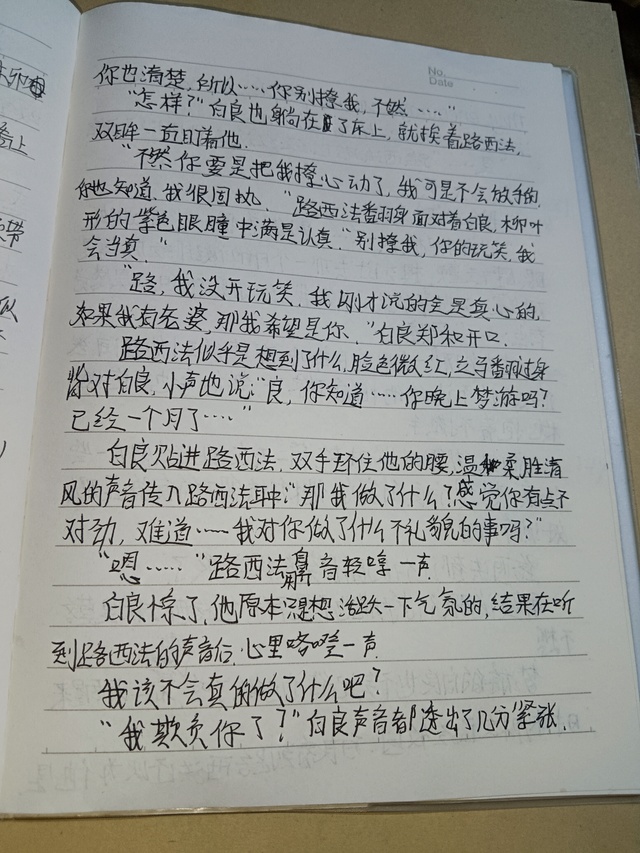 No.
Date
你也清楚,所以……你别撩我,不然……"
"怎样?"白良也躺在了床上,就挨着路西法,
双眸一直盯着他。
"不然你要是把我撩心动了,我可是不会放手的,
你也知道,我很固执。"路西法翻身面对着白良,柳叶
形的紫色眼瞳中满是认真."别撩我,你的玩笑,我
会当真."
"路,我没开玩笑.我刚才说的全是真心的,
如果我有老婆,那我希望是你."白良郑和开口.
路西法似乎是想到了什么,脸色微红,立马翻过身
背对白良,小声地说:"良,你知道……你晚上梦游吗?
已经一个月了……"
白良贴进路西法,双手环住他的腰,温柔胜清
风的声音传入路西法耳中:"那我做了什么?感觉你有点不
对劲,难道……我对你做了什么不礼貌的事吗?"
"嗯……"路西法鼻音轻哼一声.
白良惊了,他原本只是想活跃一下气氛的,结果在听
到路西法的声音后,心里咯噔一声.
我该不会真的做了什么吧?
"我欺负你了?"白良声音都透出了几分紧张.